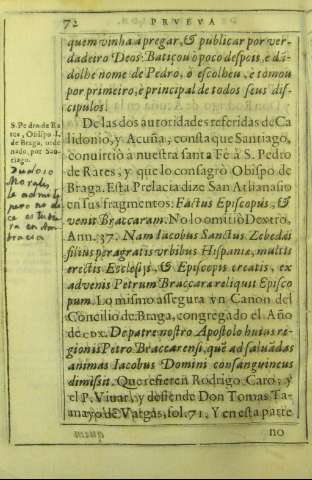 72
PRVEVA
quem vinha a pregar, & publicar por ver-
dadeiro Deos: Batiçou o poco despois, e dã-
dolhe nome de Pedro, o escolheu, e tomou
por primeiro, è principal de todos seus dis-
cipulos.
De las dos autoridades referidas de Ca
lidonio, y Acuña, consta que Santiago,
conuirtiò a nuestra santa Fè à S. Pedro
de Rates, y que lo consagrò Obispo de
Braga. Esta Prelacia dize San Athanasio
en sus fragmentos: Factus Episcopus, &
venit Braccaram. No lo omitiò Dextro,
Ann. 37. Nam Iacobus Sanctus Zebedæi
filius peragratis vrbibus Hispaniæ, multis
erectis Ecclesijs, & Episcopis creatis, ex
aduenis Petrum Braccara reliquit Episco
pum. Lo mismo assegura vn Canon del
Concilio de Braga, congregado el Año
de cdx. De patre nostro Apostolo huius re-
gionis Petro Braccarensi, quẽ ad saluãdas
animas Iacobus Domini consanguineus
dimissit. Que refieren Rodrigo Caro, y
el P. Viuar, y defiende Don Tomas Ta-
mayo de Vargas, fol. 71. Y en esta parte
no
S. Pedro de Ra
tes, Obispo I.
de Braga, orde
nado, por San
tiago.
Dudoso
Morales,